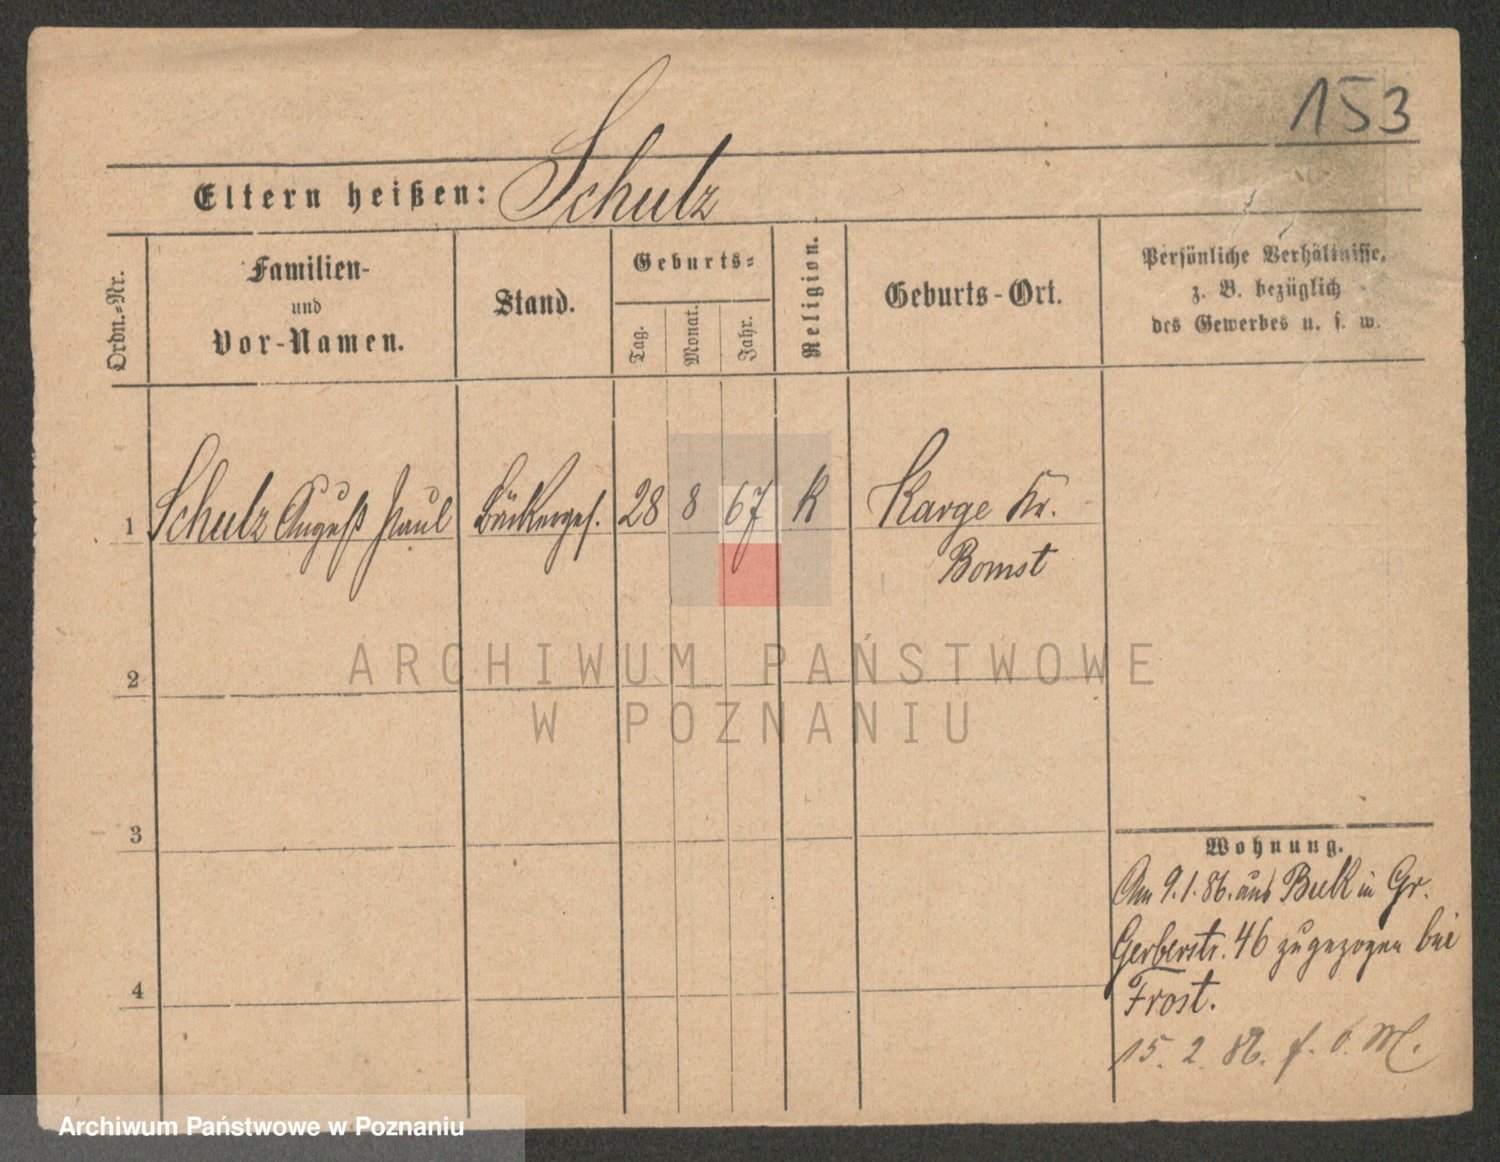 153
Eltern heißen: Schulz
Ordn.-Nr.
Familien-
und
Vor-Namen.
Stand.
Geburts-
Tag.
Monat.
Jahr.
Religion.
Geburts-Ort.
Persönliche Verhältnisse,
z. B. bezüglich
des Gewerbes u. s. w.
1 Schulz August Paul Bäckerges. 28 8 67 K Karge Kr.
Bomst
2
ARCHIWUM PAŃSTWOWE
W POZNANIU
3
4
Wohnung.
Am 9.1.86. aus Buk in Gr.
Gerberstr. 46 zugezogen bei
Frost.
15. 2. 86. f. o. M.
Archiwum Państwowe w Poznaniu